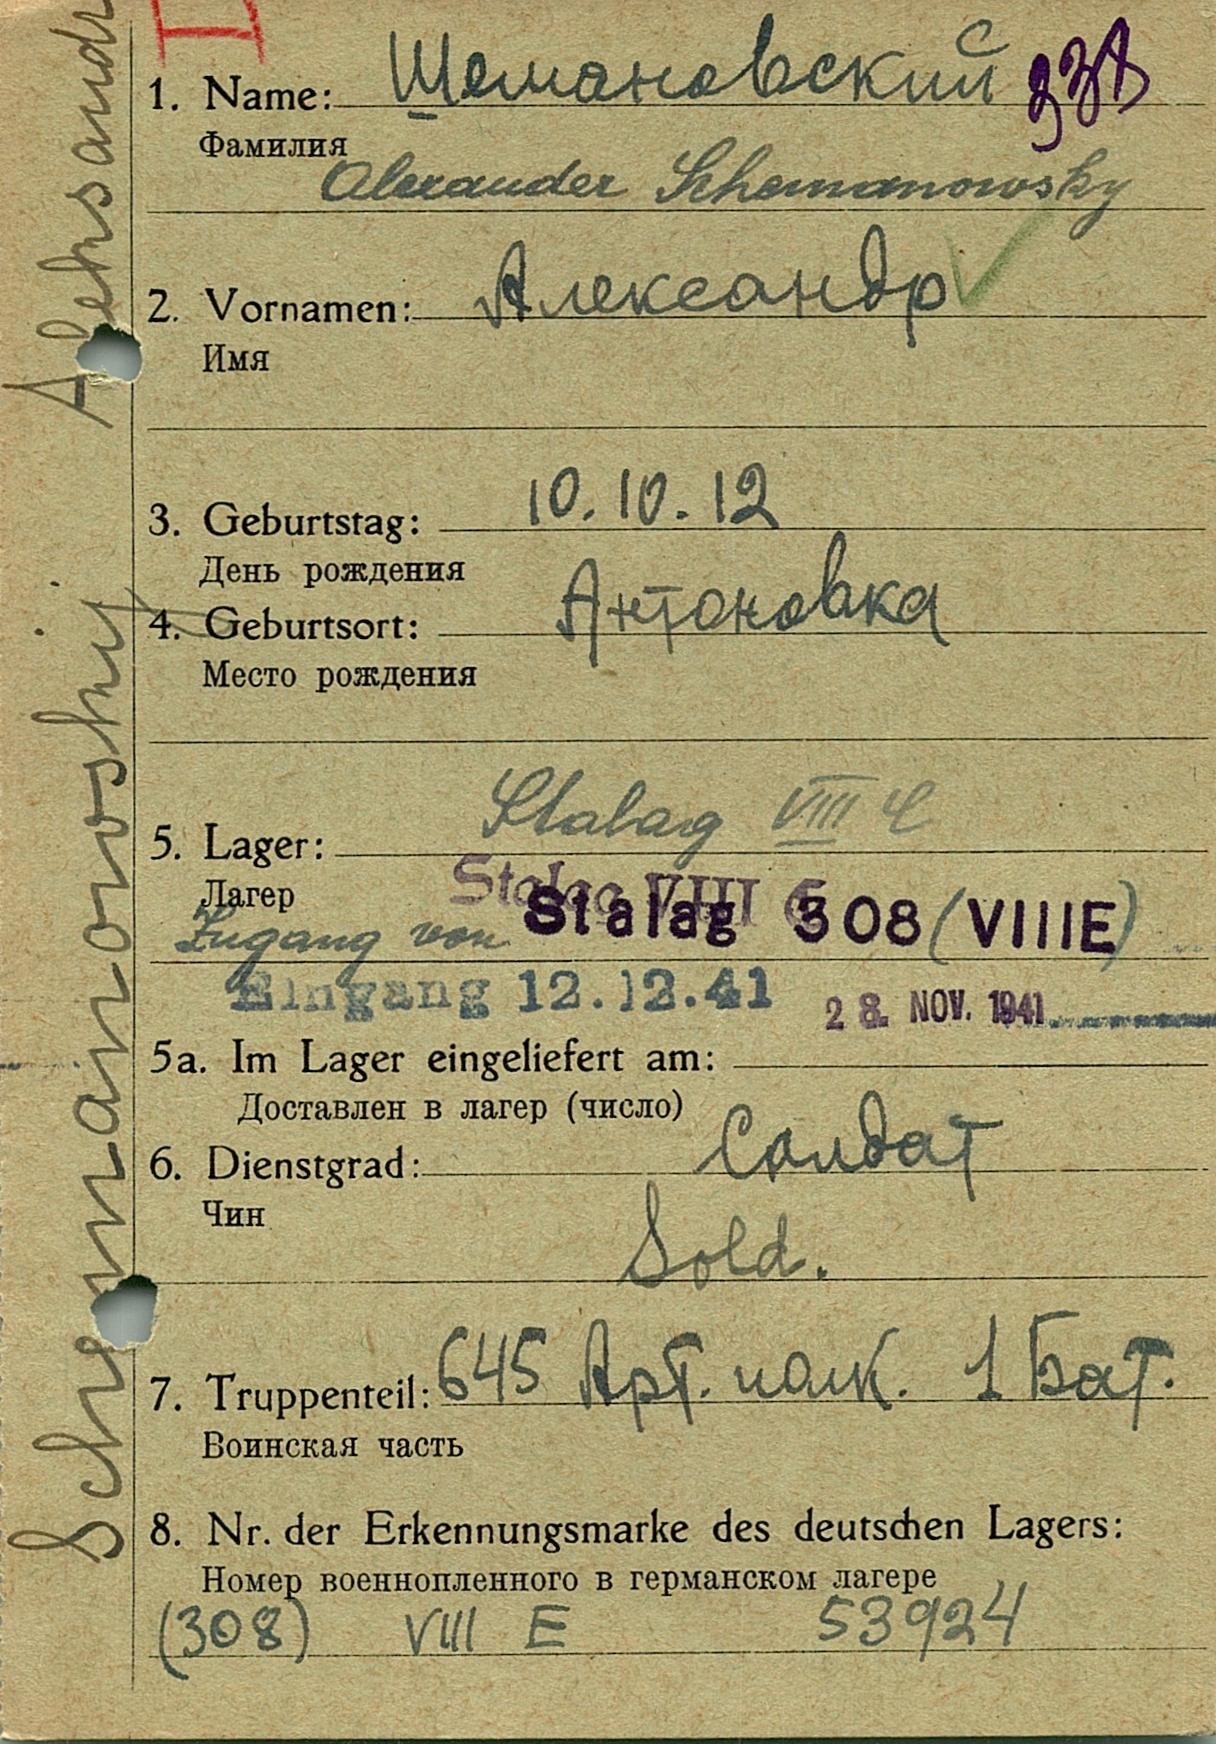 1. Name: Шемановский
Фамилия
Alexander Schemanowsky
2. Vornamen: Александр
Имя
3. Geburtstag: 10.10.12
День рождения
4. Geburtsort: Антоновка
Место рождения
5. Lager: Stalag VIII C
Лагер
Stalag VIII C
Zugang von Stalag 308 (VIIIE)
Eingang 12.12.41 28. NOV. 1941
5a. Im Lager eingeliefert am:
Доставлен в лагер (число)
6. Dienstgrad: Салдат
Чин
Sold.
7. Truppenteil: 645 Арт. полк. 1 Бат.
Воинская часть
8. Nr. der Erkennungsmarke des deutschen Lagers:
Номер военнопленного в германском лагере
(308) VIII E 53924
Schemanowskij Aleksandr